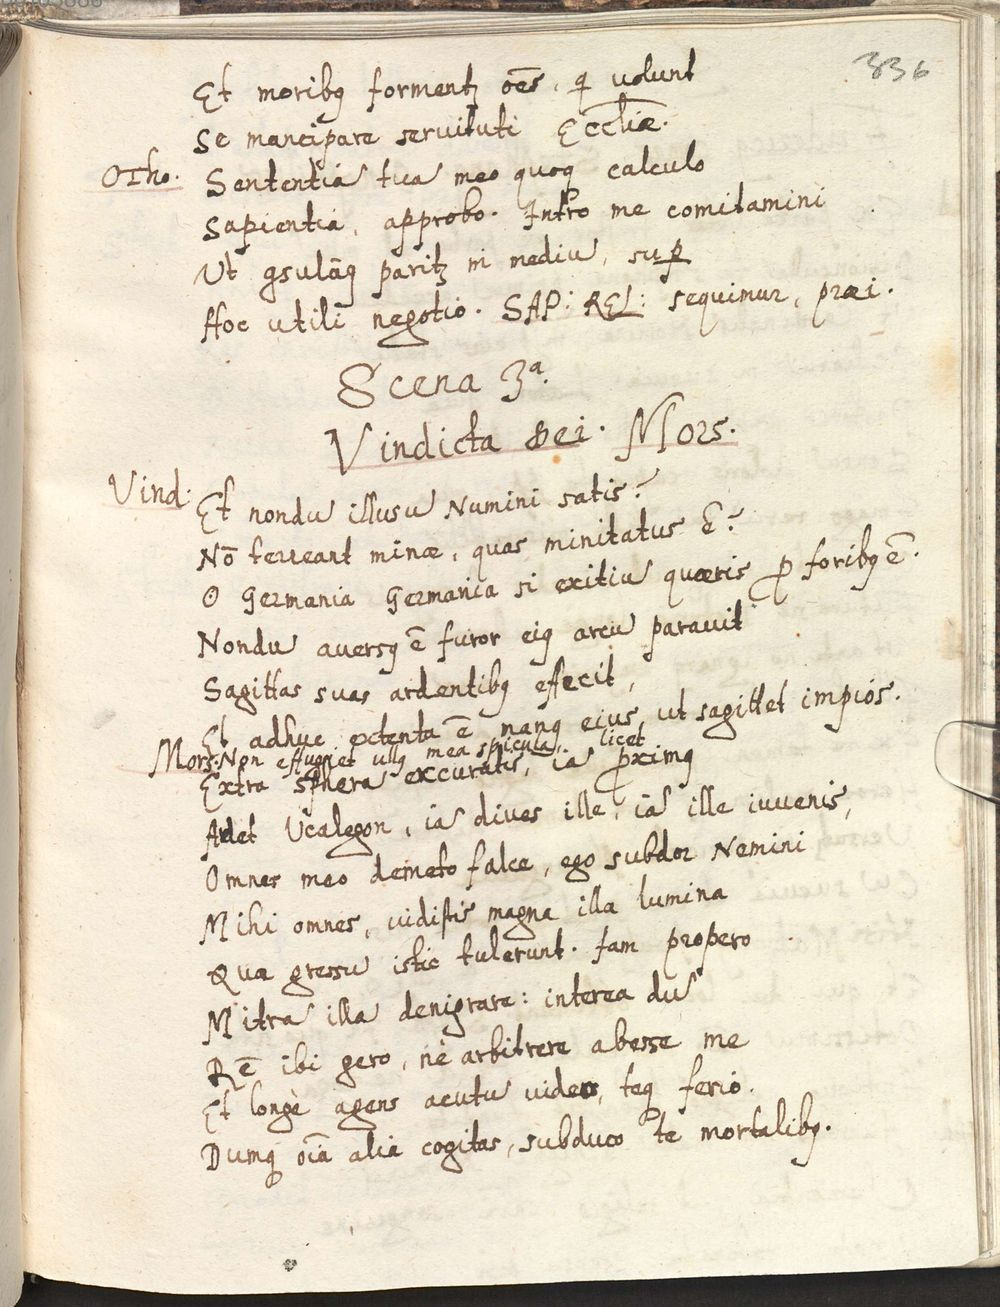 336
Et moribꝯ formentꝫ oēs, qi volunt
Se mancipare servituti Eccliæ.
Otho. Sententiā tuā meo quoqꝫ calculo
Sapientia, approbo. Intro me comitamini
Ut ꝯsulāꝯ paritꝫ in mediū, suꝑ
Hoc utili negotio. SAP: REL: sequimur, præi.
Scena 3ª.
Vindicta Dei. Mors.
Vind: Et nondū illusū Numini satis?
Nō terreant minæ, quas minitatus ē?
O Germania Germania si exitiū quæris p foribꝯ ē.
Nondū aversꝯ ē furor eiꝯ arcū paravit
Sagittas suas ardentibꝯ effecit,
Et adhuc extenta ē manꝯ eius, ut sagittet impiós.
Mors. Non effugiet ullꝯ mea spicula, licet
Extra sphæra excuratis, iā proximꝯ
Ardet Ucalegon, iā dives ille, iā ille iuvenis,
Omnes meo demeto falce, ego subdor Nemini
Mihi omnes, vidistis magna illa lumina
Qua gressū istic tulerunt. Iam propero
Mitrā illā denigrare: interea dū
Rē ibi gero, nè arbitrere abesse me
Et longè agens acutū video, teqꝫ ferio.
Dumqꝫ oīa alia cogitas, subduco te mortalibꝯ.